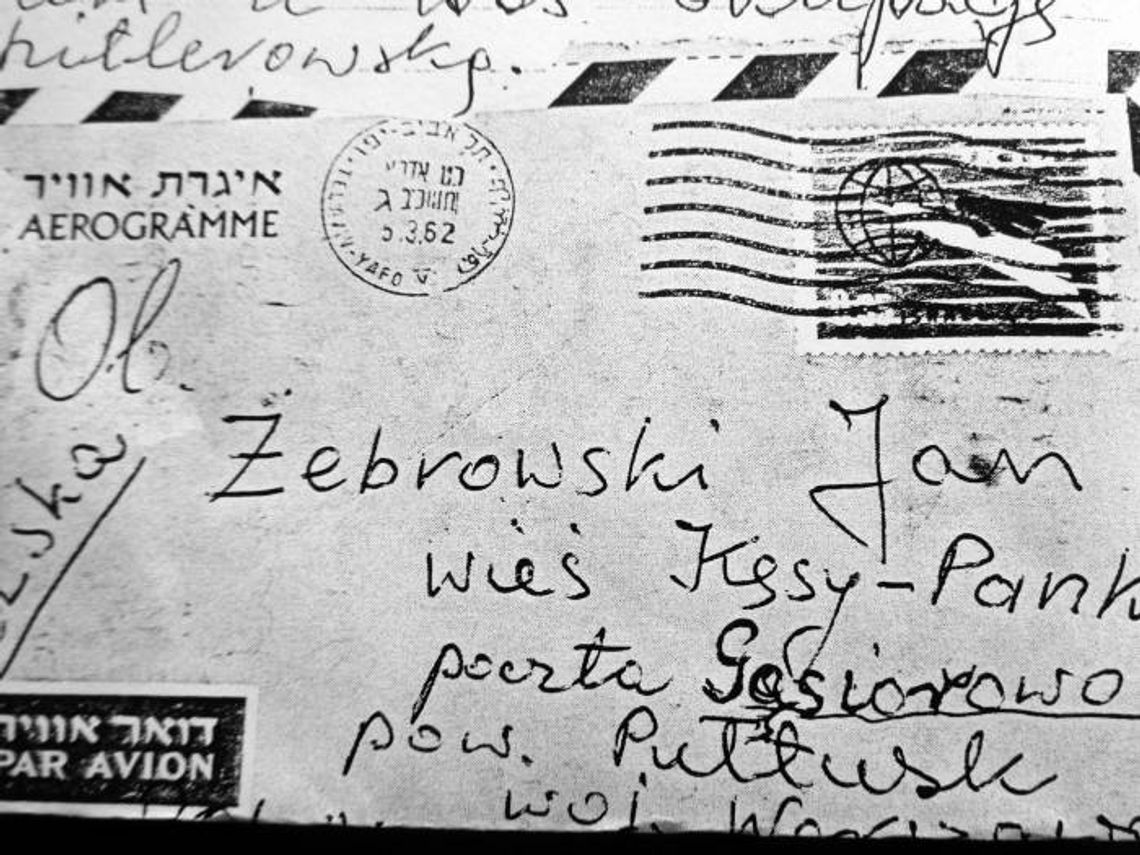 hitlerowską.
איגרת אוויר
AEROGRAMME
תל אביב-יפו
5.3.62
YAFO
Ob.
Żebrowski Jan
wieś Kęsy-Pank
poczta Gąsiorowo
pow. Pułtusk
woj.
דואר אוויר
PAR AVION